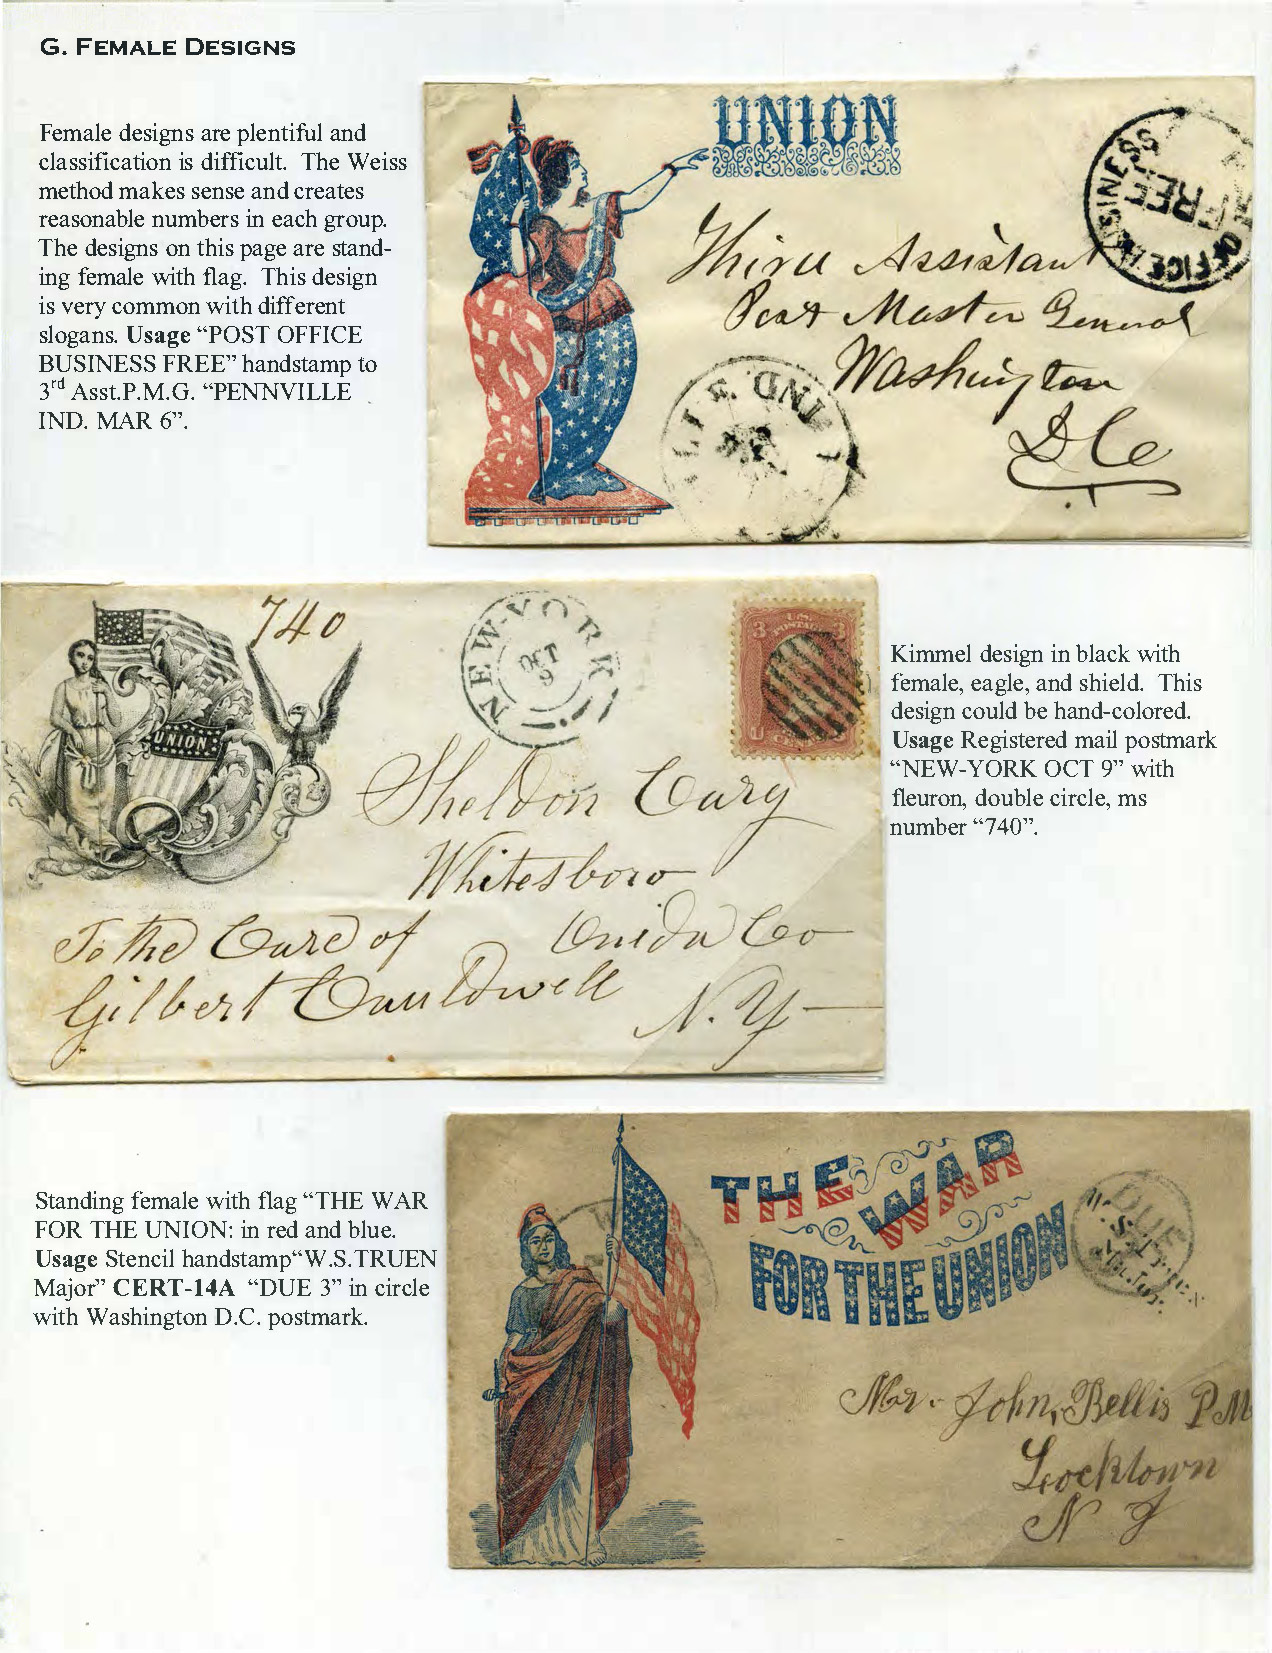 G. FEMALE DESIGNS
Female designs are plentiful and
classification is difficult. The Weiss
method makes sense and creates
reasonable numbers in each group.
The designs on this page are stand-
ing female with flag. This design
is very common with different
slogans. Usage “POST OFFICE
BUSINESS FREE” handstamp to
3rd Asst.P.M.G. “PENNVILLE
IND. MAR 6”.
UNION
OFFICE BUSINESS
FREE
Third Assistant
Post Master General
Washington
D C
IND.
740
NEW-YORK
OCT
9
U.S. POSTAGE
3 3
UNION
Sheldon Cary
Whitesboro
Oneida Co
N. Y
To the Care of
Gilbert Cauldwell
Kimmel design in black with
female, eagle, and shield. This
design could be hand-colored.
Usage Registered mail postmark
“NEW-YORK OCT 9” with
fleuron, double circle, ms
number “740”.
Standing female with flag “THE WAR
FOR THE UNION: in red and blue.
Usage Stencil handstamp“W.S.TRUEN
Major” CERT-14A “DUE 3” in circle
with Washington D.C. postmark.
THE WAR
FOR THE UNION
DUE
W.S.
Major.
Mr. John, Bellis P M
Locktown
N J